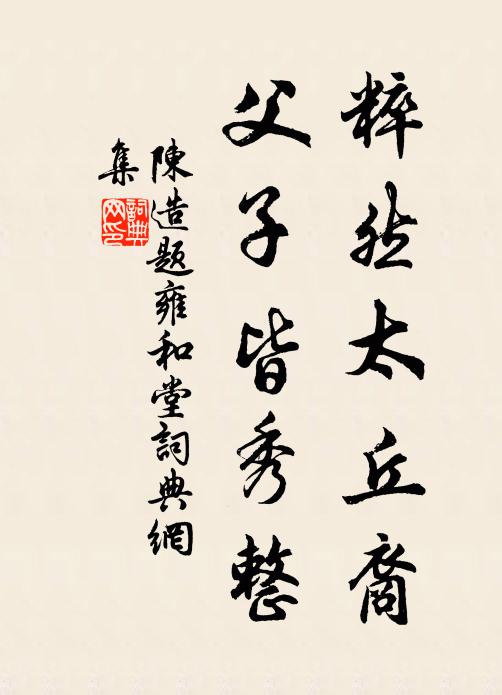 粹然太丘裔
父子皆秀整
陳造題雍和堂詞典網
集
詞典网印